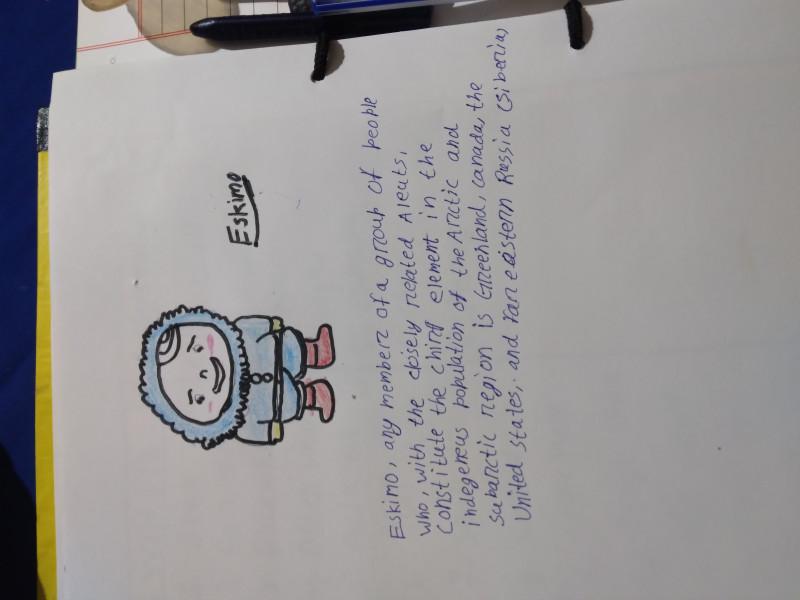 Eskimo
Eskimo, any member of a group of people
who, with the closely related Aleuts,
constitute the chief element in the
indegenous population of the Arctic and
subarctic region is Greenland, canada, the
United States, and Far eastern Russia (Siberia)